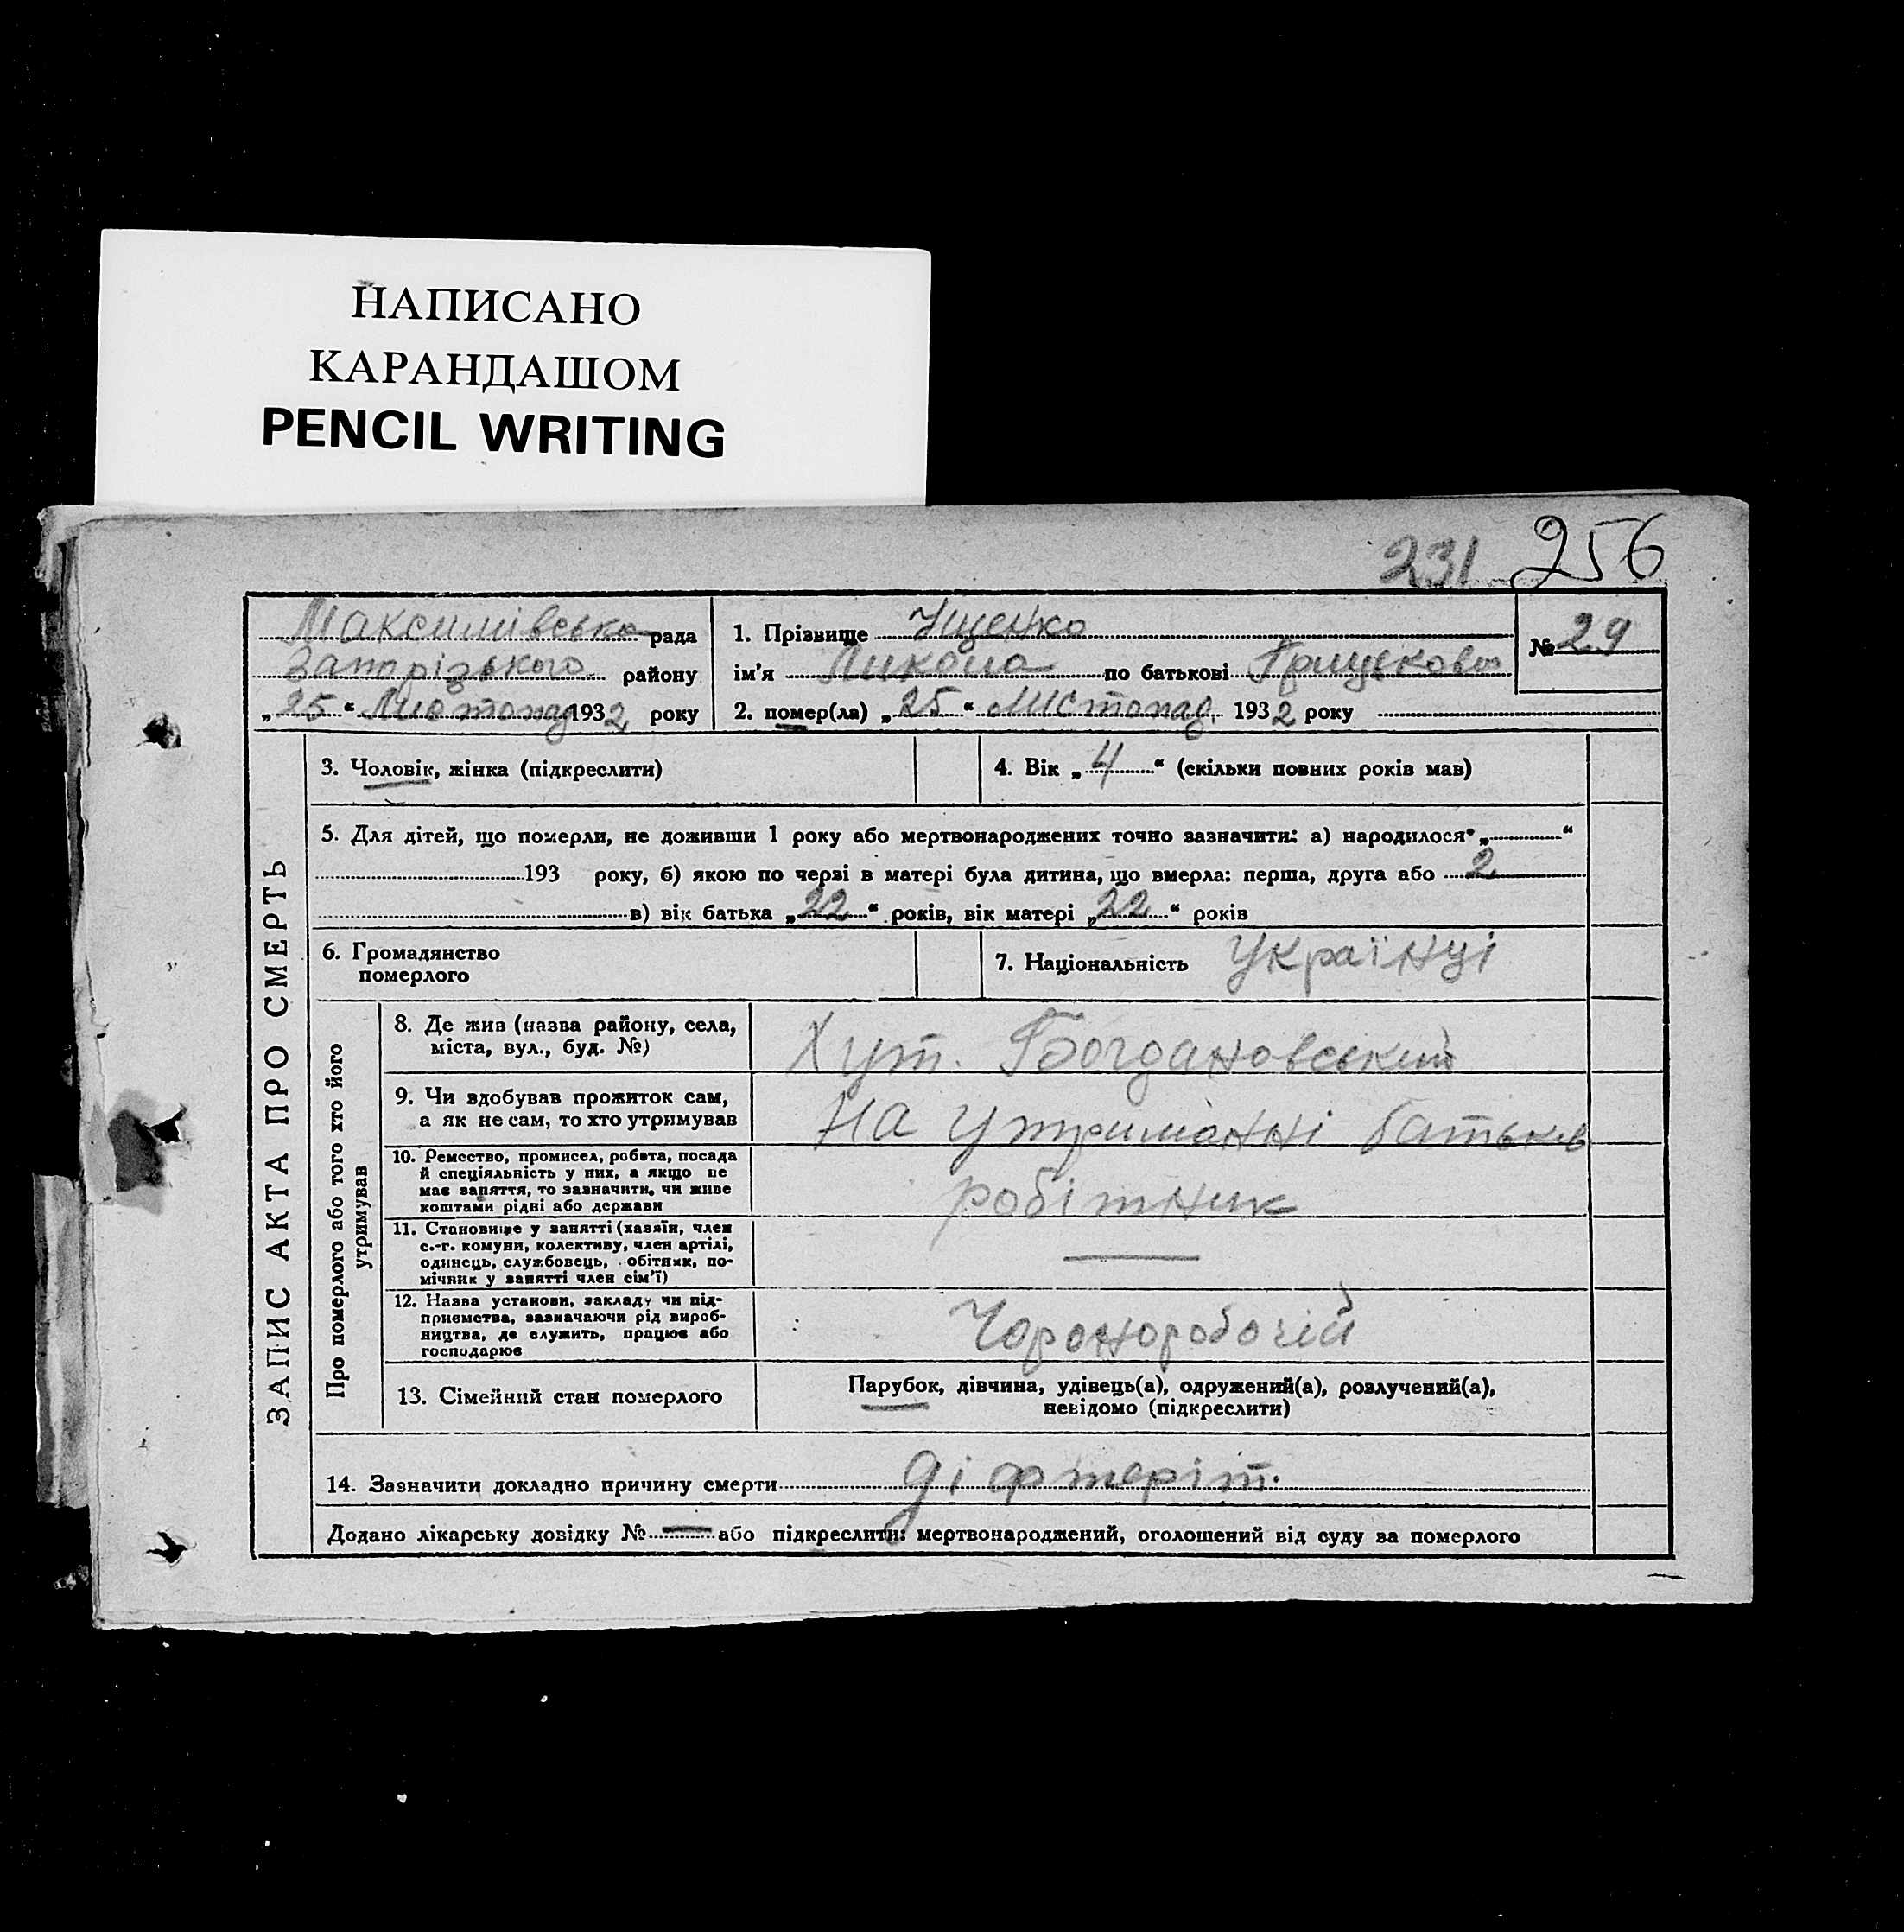 НАПИСАНО
КАРАНДАШОМ
PENCIL WRITING
231 256
Максимівська рада
Запорізького району
„25“ Листопад 1932 року
1. Прізвище Іщенко
ім'я Микола по батькові
2. помер(ла) „25“ Листопад 1932 року
№ 29
ЗАПИС АКТА ПРО СМЕРТЬ
3. Чоловік, жінка (підкреслити)
4. Вік „4“ (скільки повних років мав)
5. Для дітей, що померли, не доживши 1 року або мертвонароджених точно зазначити: а) народилося „ “
193 року, б) якою по черзі в матері була дитина, що вмерла: перша, друга або 2
в) вік батька „22“ років, вік матері „22“ років
6. Громадянство
померлого
7. Національність Українці
Про померлого або того хто його
утримував
8. Де жив (назва району, села,
міста, вул., буд. №)
Хут. Богдановський
9. Чи здобував прожиток сам,
а як не сам, то хто утримував
на утриманні батьків
10. Ремество, промисел, робота, посада
й спеціяльність у них, а якщо не
має заняття, то зазначити, чи живе
коштами рідні або держави
робітник
11. Становище у занятті (хазяїн, член
с.-г. комуни, колективу, член артілі,
одинець, службовець, обітник, по-
мічник у занятті член сім'ї)
—
12. Назва установи, закладу чи під-
приємства, зазначаючи рід вироб-
ництва, де служить, працює або
господарює
Чорноробочій
13. Сімейний стан померлого
Парубок, дівчина, удівець(а), одружений(а), розлучений(а),
невідомо (підкреслити)
14. Зазначити докладно причину смерти діфтеріт.
Додано лікарську довідку № — або підкреслити: мертвонароджений, оголошений від суду за померлого